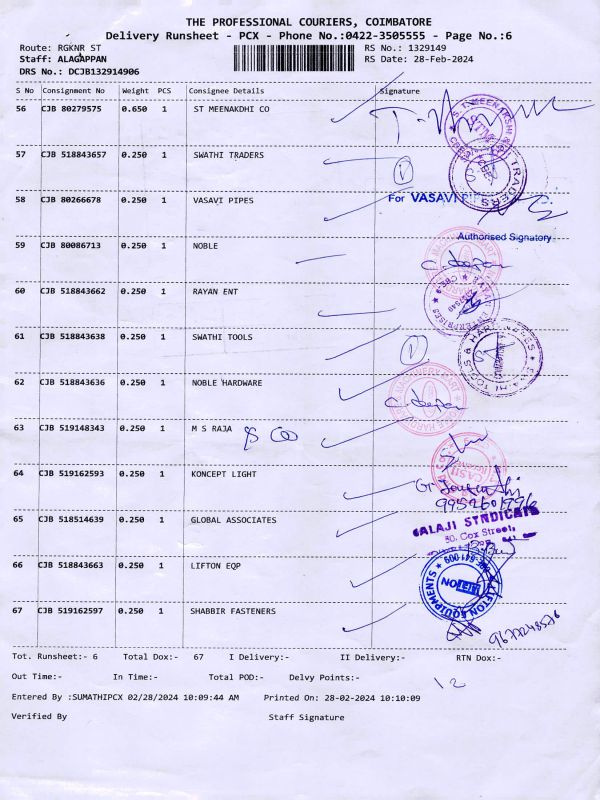 THE PROFESSIONAL COURIERS, COIMBATORE
Delivery Runsheet - PCX - Phone No.:0422-3505555 - Page No.:6
Route: RGKNR ST RS No.: 1329149
Staff: ALAGAPPAN RS Date: 28-Feb-2024
DRS No.: DCJB132914906
S No Consignment No Weight PCS Consignee Details Signature
56 CJB 80279575 0.650 1 ST MEENAKDHI CO
57 CJB 518843657 0.250 1 SWATHI TRADERS
TRADERS
58 CJB 80266678 0.250 1 VASAVI PIPES For VASAVI
Authorised Signatory
59 CJB 80086713 0.250 1 NOBLE
60 CJB 518843662 0.250 1 RAYAN ENT
61 CJB 518843638 0.250 1 SWATHI TOOLS
62 CJB 518843636 0.250 1 NOBLE HARDWARE
63 CJB 519148343 0.250 1 M S RAJA & CO
64 CJB 519162593 0.250 1 KONCEPT LIGHT
65 CJB 518514639 0.250 1 GLOBAL ASSOCIATES
ALAJI SYNDICATE
30, Cox Street,
66 CJB 518843663 0.250 1 LIFTON EQP
LIFTON EQUIPMENTS
67 CJB 519162597 0.250 1 SHABBIR FASTENERS
Tot. Runsheet:- 6 Total Dox:- 67 I Delivery:- II Delivery:- RTN Dox:-
Out Time:- In Time:- Total POD:- Delvy Points:- 12
Entered By :SUMATHIPCX 02/28/2024 10:09:44 AM Printed On: 28-02-2024 10:10:09
Verified By Staff Signature